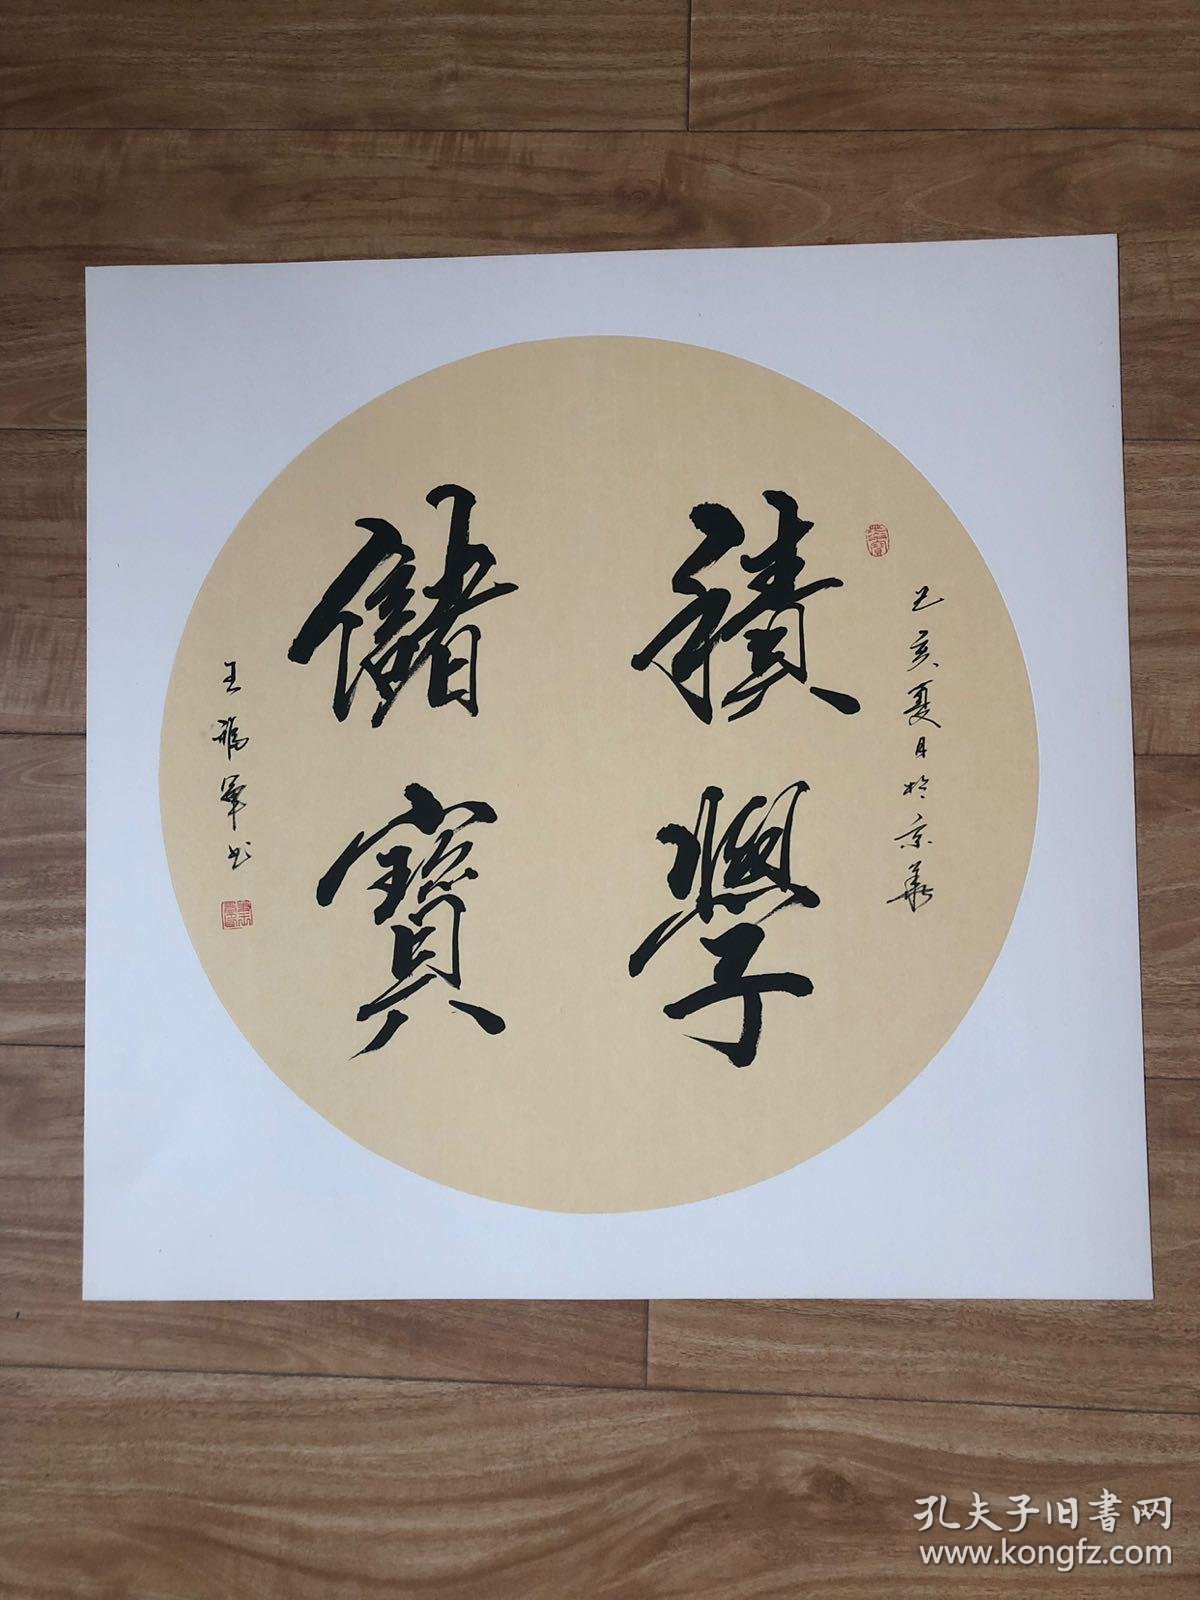 己亥夏日於京華
積學
儲寶
王福軍书
孔夫子旧書网
www.kongfz.com